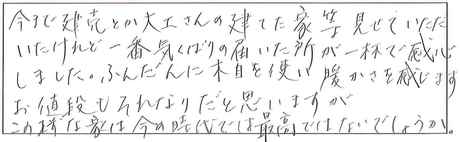 今まで建売とか大工さんの建てた家等見せていただ
いたけれど一番気くばりの届いた所が一杯で感心
しました。ふんだんに木目を使い暖かさを感じます
お値段もそれなりだと思いますが
この様な家は今の時代では最高ではないでしょうか。